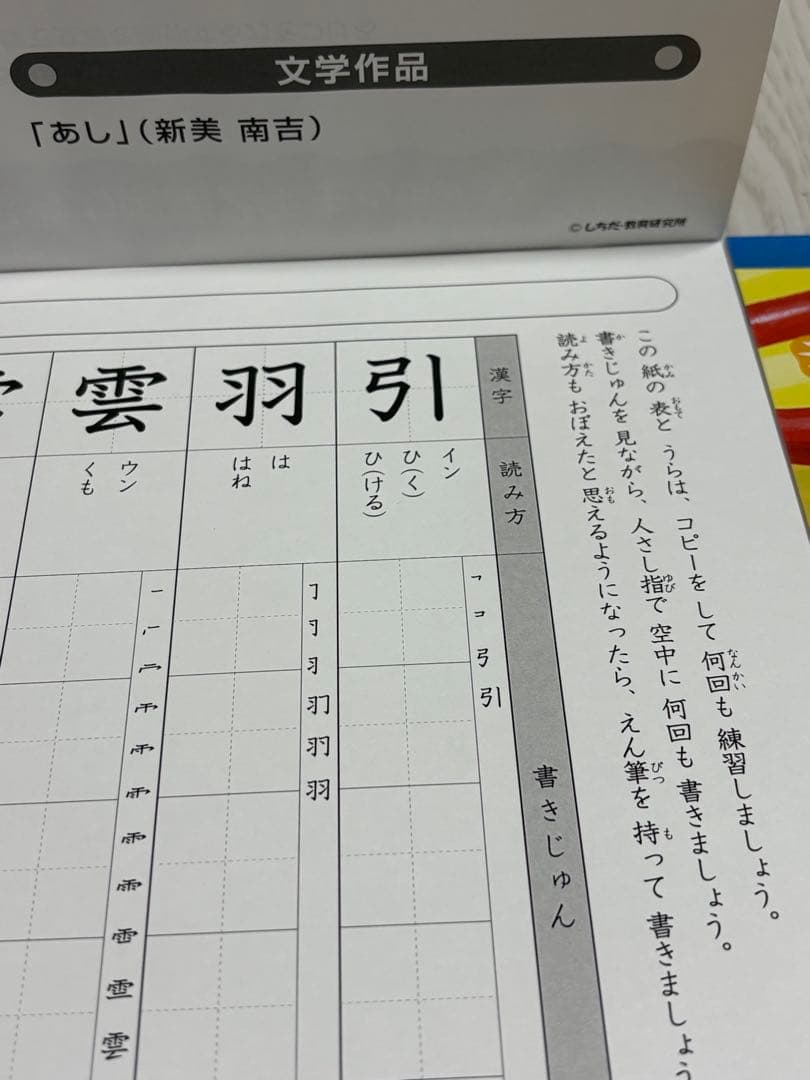 文学作品
「あし」（新美 南吉）
©しちだ・教育研究所
この紙の表とうらは、コピーをして何回も練習しましょう。
書きじゅんを見ながら、人さし指で空中に何回も書きましょう。
読み方もおぼえたと思えるようになったら、えん筆を持って書きましょう
漢字
読み方
書きじゅん
引
イン
ひ(く)
ひ(ける)
羽
は
はね
雲
ウン
くも